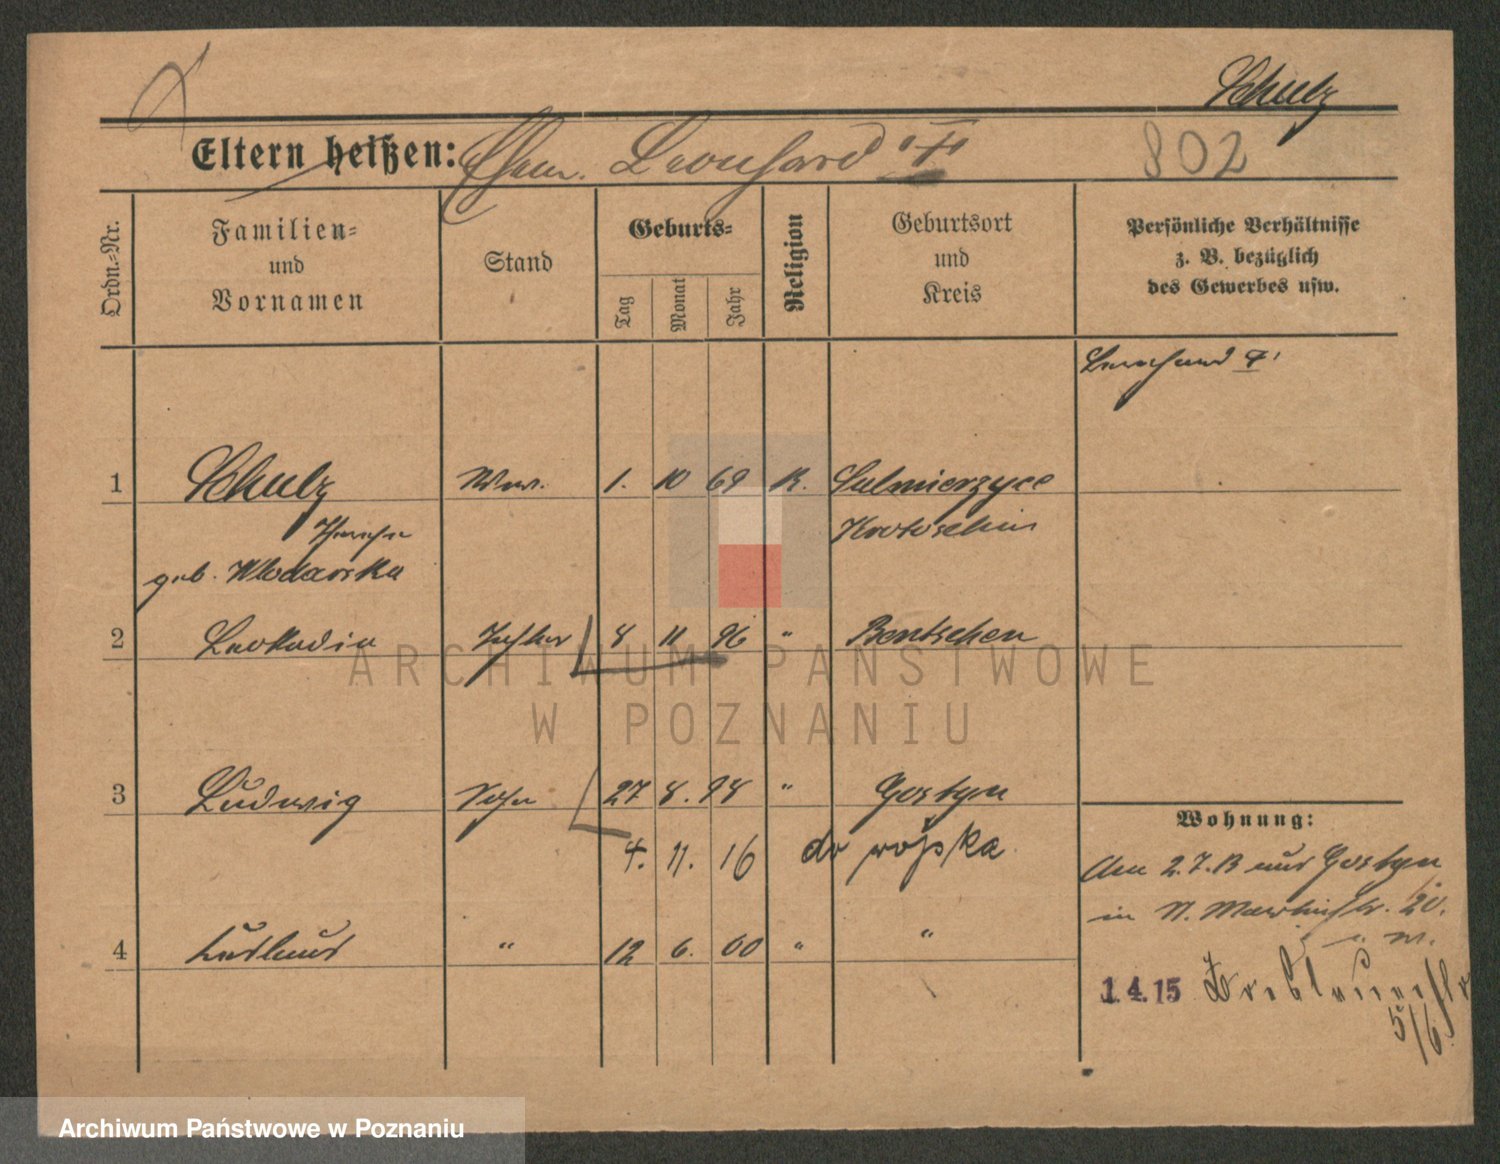 Schulz
Eltern heißen: Ehem. Leonhard "†"
802
Ordn.-Nr.
Familien-
und
Vornamen
Stand
Geburts-
Tag
Monat
Jahr
Religion
Geburtsort
und
Kreis
Persönliche Verhältnisse
z. B. bezüglich
des Gewerbes usw.
Leonhard †
1 Schulz Ww. 1. 10 69 K. Sulmierzyce
Krotoschin
geb. Wlodarska
2 Leokadia Tochter 8 11 96 " Bentschen
3 Ludwig Sohn 27 8. 98 " Gostyn
4. 11. 16
4 " 12 6. 00 " "
Wohnung:
Am 2.7.13 aus Gostyn
in St. Martinstr. 20.
1.4.15
5/6
ARCHIWUM PAŃSTWOWE
W POZNANIU
Archiwum Państwowe w Poznaniu